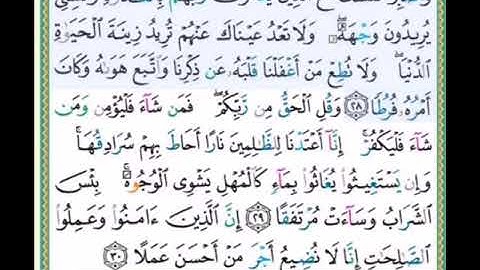 يُرِيدُونَ وَجْهَهُۥۖ وَلَا تَعْدُ عَيْنَاكَ عَنْهُمْ تُرِيدُ زِينَةَ ٱلْحَيَوٰةِ
ٱلدُّنْيَاۖ وَلَا تُطِعْ مَنْ أَغْفَلْنَا قَلْبَهُۥ عَن ذِكْرِنَا وَٱتَّبَعَ هَوَىٰهُ وَكَانَ
أَمْرُهُۥ فُرُطًا ٢٨ وَقُلِ ٱلْحَقُّ مِن رَّبِّكُمْۖ فَمَن شَآءَ فَلْيُؤْمِن وَمَن
شَآءَ فَلْيَكْفُرْۚ إِنَّآ أَعْتَدْنَا لِلظَّٰلِمِينَ نَارًا أَحَاطَ بِهِمْ سُرَادِقُهَاۚ
وَإِن يَسْتَغِيثُوا۟ يُغَاثُوا۟ بِمَآءٍ كَٱلْمُهْلِ يَشْوِى ٱلْوُجُوهَۚ بِئْسَ
ٱلشَّرَابُ وَسَآءَتْ مُرْتَفَقًا ٢٩ إِنَّ ٱلَّذِينَ ءَامَنُوا۟ وَعَمِلُوا۟
ٱلصَّٰلِحَٰتِ إِنَّا لَا نُضِيعُ أَجْرَ مَنْ أَحْسَنَ عَمَلًا ٣٠